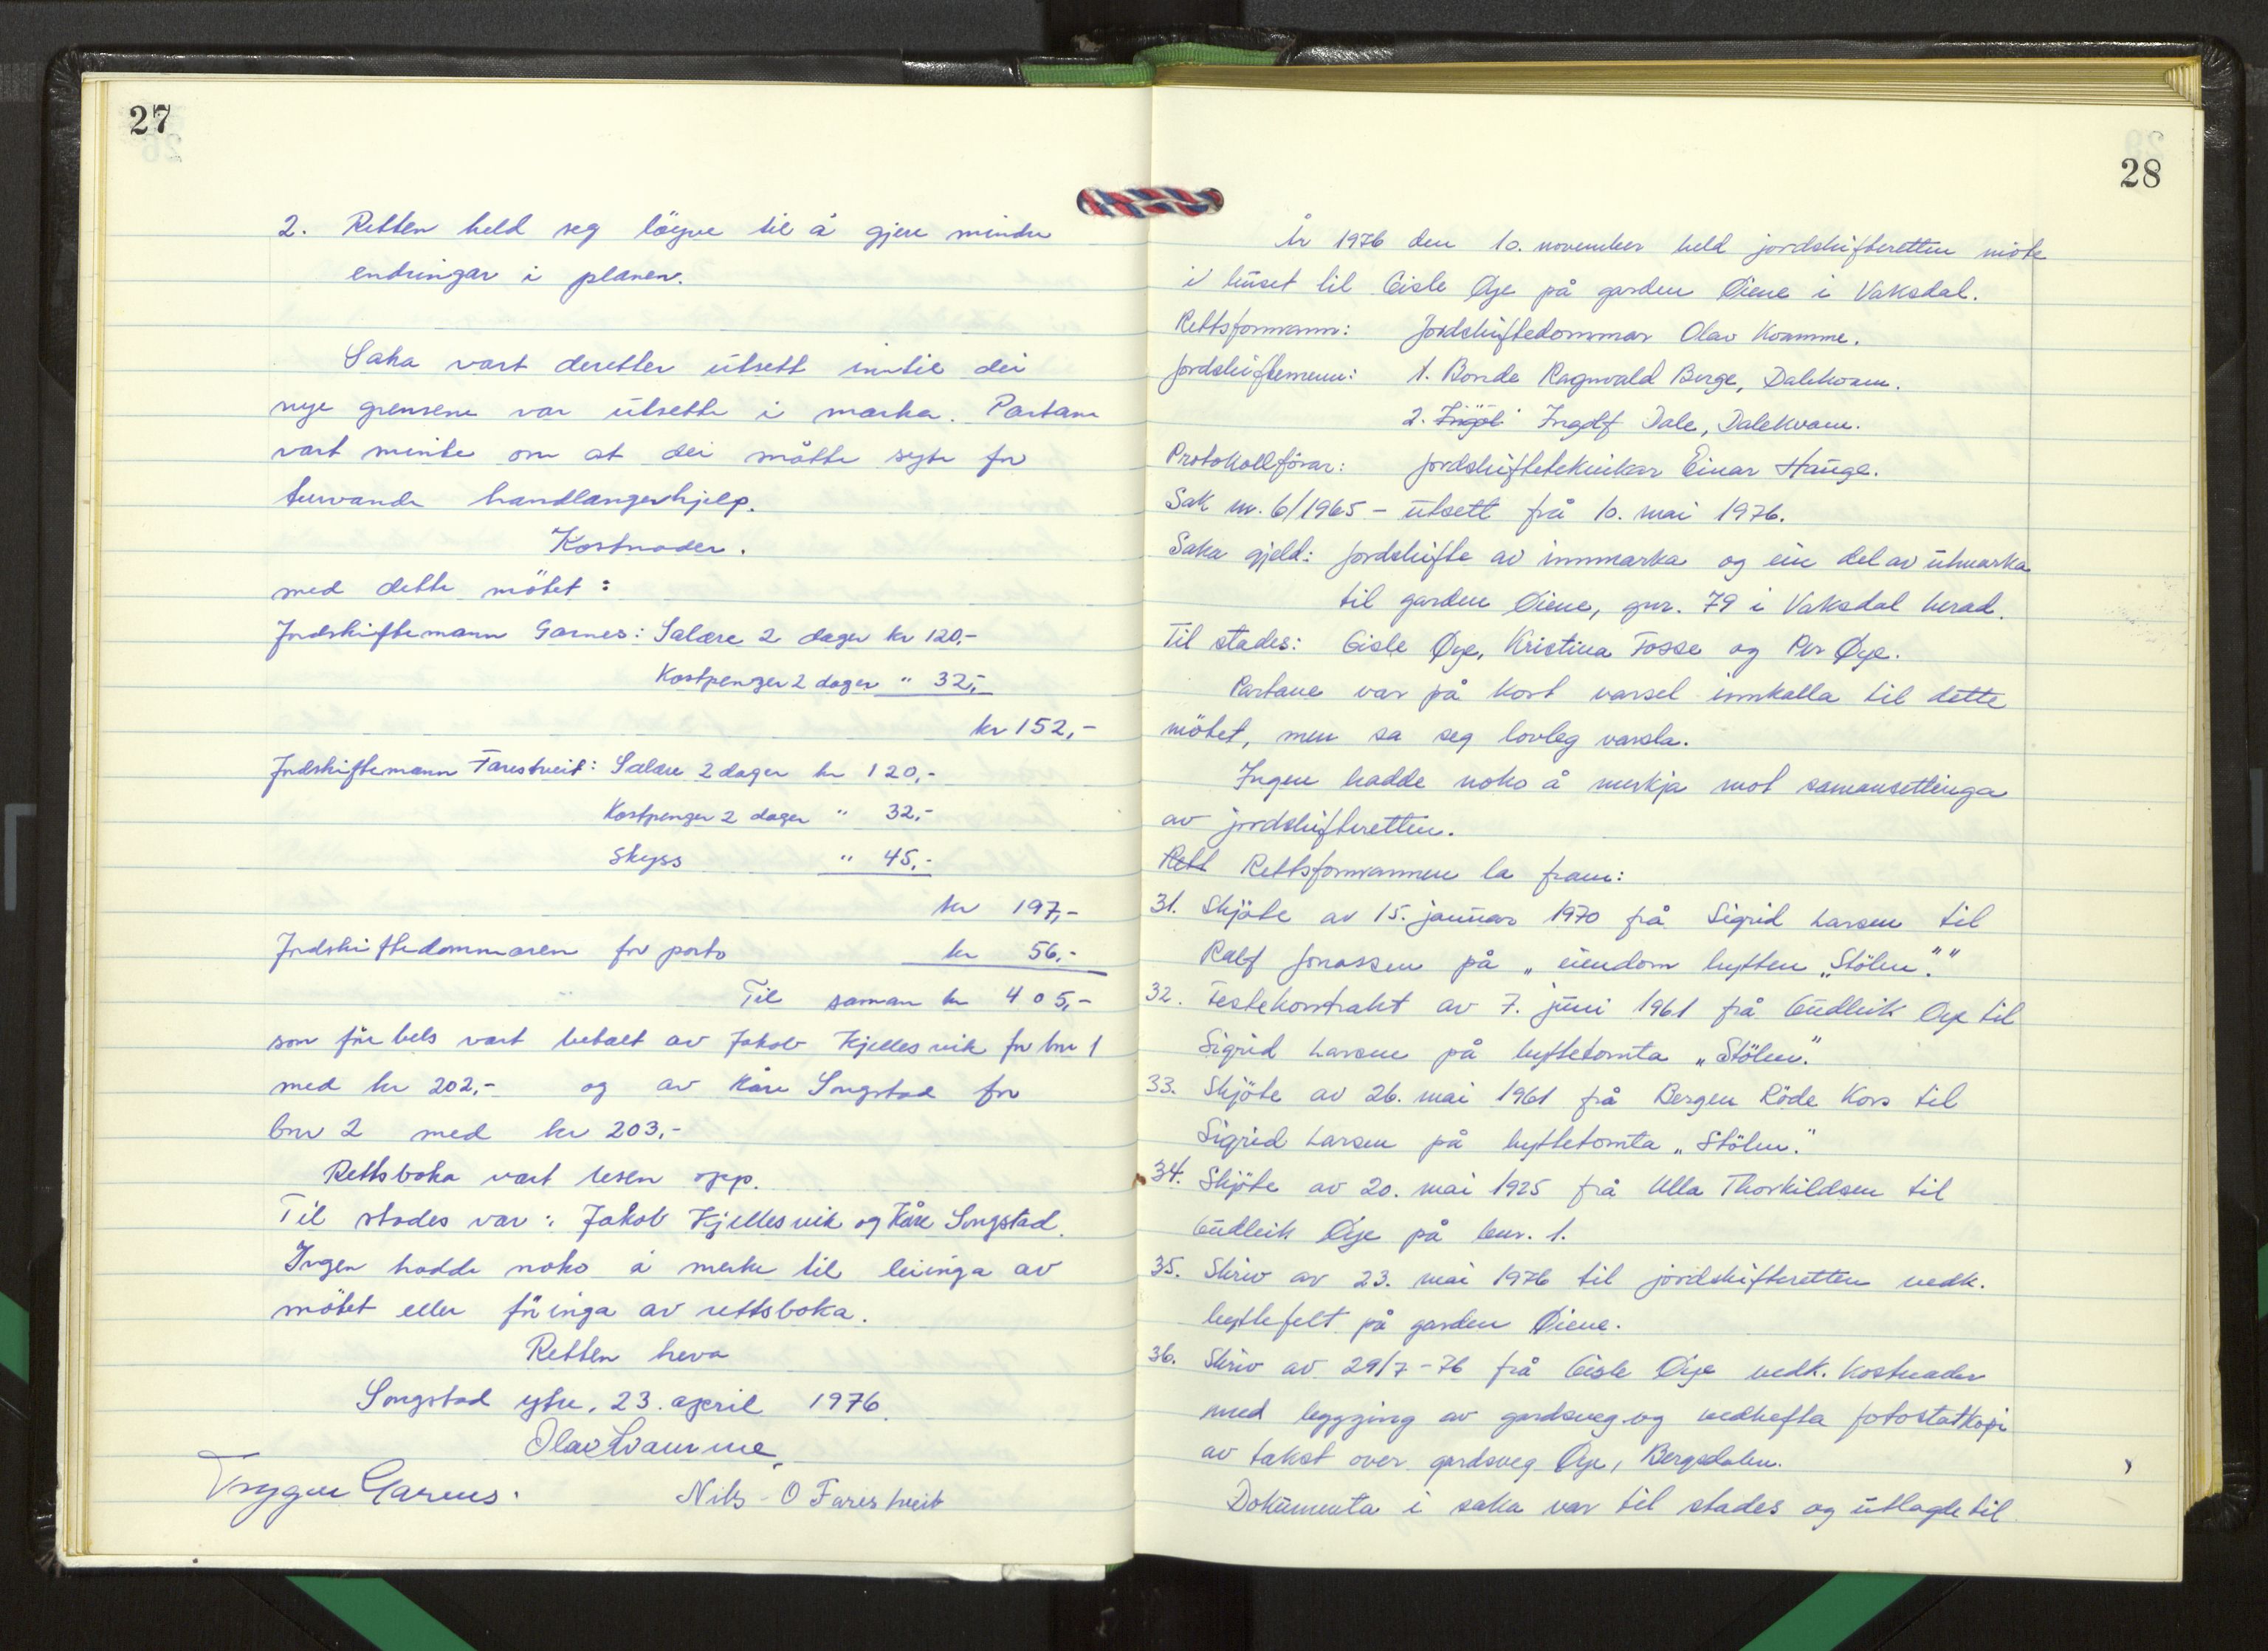 27
2. Retten held seg løyve til å gjere mindre
endringar i planen.
Saka vart deretter utsett inntil dei
nye grensene var utsette i marka. Partane
vart minte om at dei måtte syte for
turvande handlangerhjelp.
Kostnader.
med dette møtet:
Jordskiftemann Garnes: Salære 2 dager kr 120,-
Kostpenger 2 dager " 32,-
kr 152,-
Jordskiftemann Farestveit: Salære 2 dager kr 120,-
Kostpenger 2 dager " 32,-
Skyss " 45,-
kr 197,-
Jordskiftedommaren for porto kr 56,-
Til saman kr 405,-
som førebels vart betalt av Jakob Kjellesvik for bnr 1
med kr 202,- og av Kåre Songstad for
bnr 2 med kr 203,-
Rettsboka vart lesen opp.
Til stades var: Jakob Kjellesvik og Kåre Songstad.
Ingen hadde noko å merke til leiinga av
møtet eller føringa av rettsboka.
Retten heva
Songstad ytre, 23. april 1976.
Olav Kvamme
Trygve Garnes.
Nils O Farestveit
28
År 1976 den 10. november held jordskifteretten møte
i huset til Gisle Øye på garden Øiene i Vaksdal.
Rettsformann: Jordskiftedommar Olav Kvamme.
Jordskiftemenn: 1. Bonde Ragnvald Berge, Dalekvam.
2. Ingol Ingolf Dale, Dalekvam.
Protokollførar: Jordskifteteknikar Einar Hauge.
Sak nr. 6/1965 - utsett frå 10. mai 1976.
Saka gjeld: Jordskifte av innmarka og ein del av utmarka
til garden Øiene, gnr. 79 i Vaksdal herad.
Til stades: Gisle Øye, Kristina Fosse og Per Øye.
Partane var på kort varsel innkalla til dette
møtet, men sa seg lovleg varsla.
Ingen hadde noko å merkja mot samansettinga
av jordskifteretten.
Rett Rettsformannen la fram:
31. Skjøte av 15. januar 1970 frå Sigrid Larsen til
Ralf Jonassen på „eiendom hytten „Stölen"."
32. Festekontrakt av 7. juni 1961 frå Gudleik Øye til
Sigrid Larsen på hyttetomta „Stölen".
33. Skjöte av 26. mai 1961 frå Bergen Röde Kors til
Sigrid Larsen på hyttetomta „Stölen".
34. Skjöte av 20. mai 1925 frå Ulla Thorkildsen til
Gudleik Øye på bnr. 1.
35. Skriv av 23. mai 1976 til jordskifteretten vedk.
hyttefelt på garden Øiene.
36. Skriv av 29/7-76 frå Gisle Øye vedk. kostnader
med leggging av gardsveg og vedhefta fotostatkopi
av takst over gardsveg Øye, Bergsdalen.
Dokumenta i saka var til stades og utlagde til